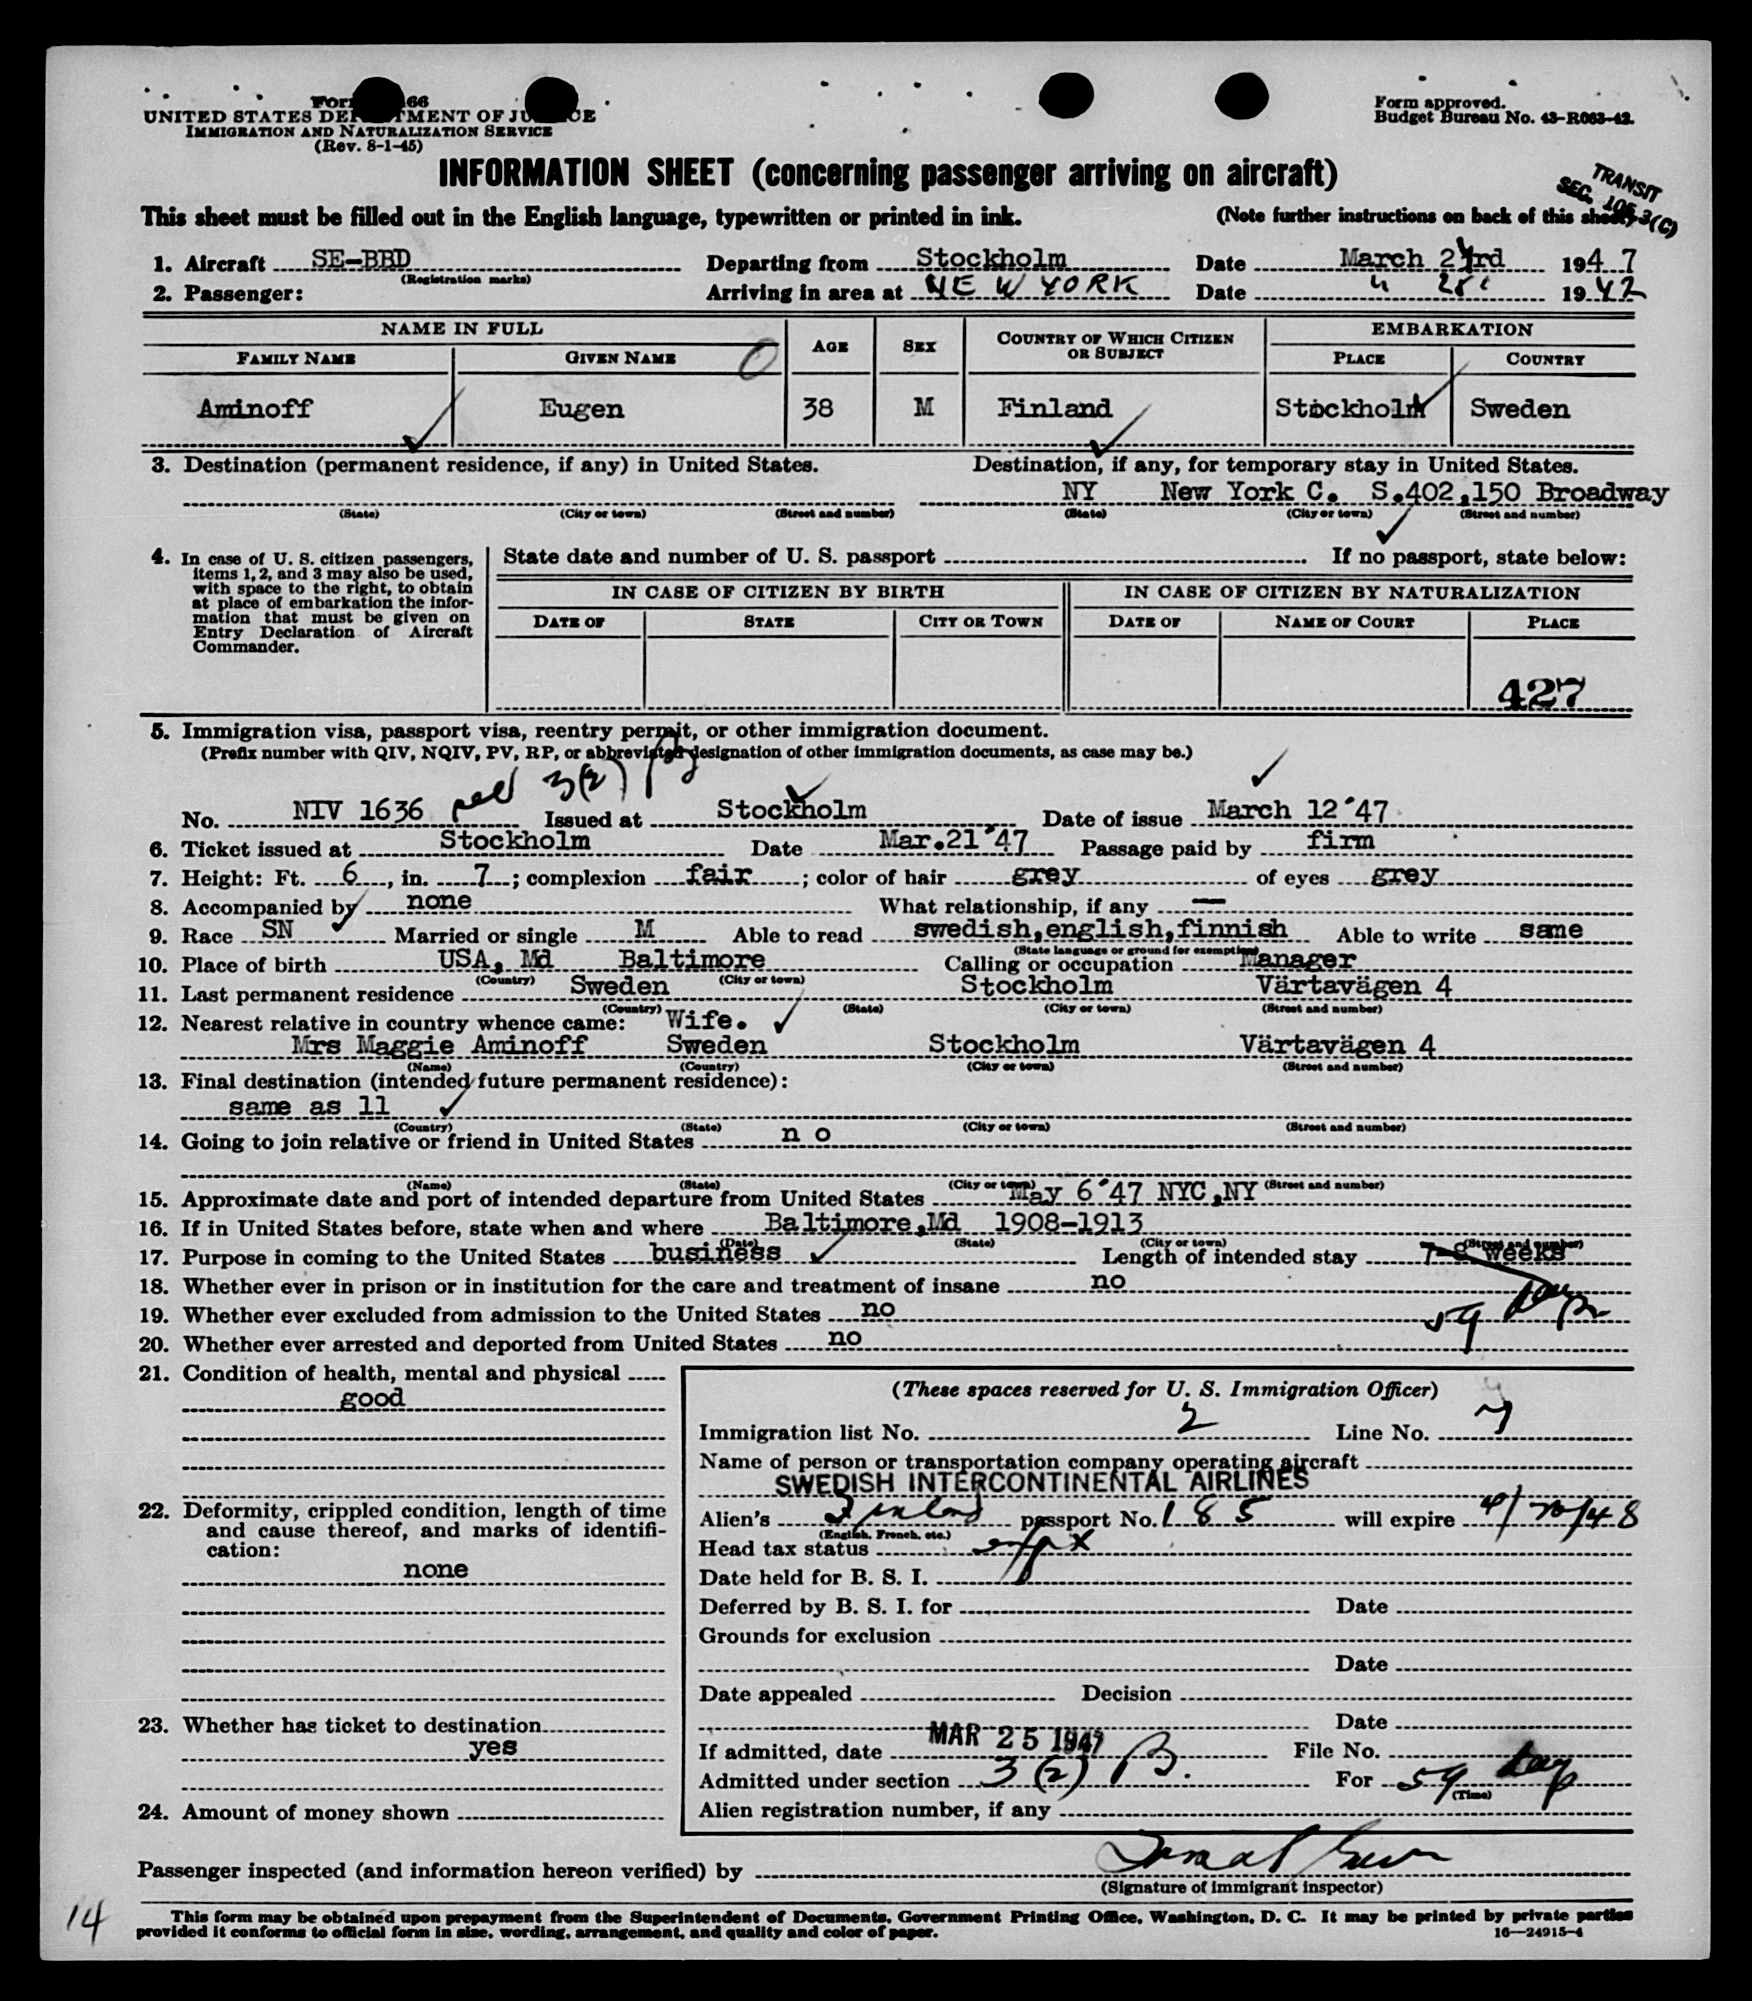 Form 66
UNITED STATES DEPARTMENT OF JUSTICE
IMMIGRATION AND NATURALIZATION SERVICE
(Rev. 8-1-45)
Form approved.
Budget Bureau No. 43-R063-42.
INFORMATION SHEET (concerning passenger arriving on aircraft)
TRANSIT
SEC. 105-3(C)
This sheet must be filled out in the English language, typewritten or printed in ink. (Note further instructions on back of this sheet)
1. Aircraft SE-BBD Departing from Stockholm Date March 24rd 1947
(Registration marks)
2. Passenger: Arriving in area at NEW YORK Date " 25 1947
NAME IN FULL AGE SEX COUNTRY OF WHICH CITIZEN OR SUBJECT EMBARKATION
FAMILY NAME GIVEN NAME PLACE COUNTRY
Aminoff Eugen 38 M Finland Stockholm Sweden
3. Destination (permanent residence, if any) in United States. Destination, if any, for temporary stay in United States.
NY New York C. S.402,150 Broadway
(State) (City or town) (Street and number) (State) (City or town) (Street and number)
4. In case of U. S. citizen passengers, items 1, 2, and 3 may also be used, with space to the right, to obtain at place of embarkation the information that must be given on Entry Declaration of Aircraft Commander.
State date and number of U. S. passport If no passport, state below:
IN CASE OF CITIZEN BY BIRTH IN CASE OF CITIZEN BY NATURALIZATION
DATE OF STATE CITY OR TOWN DATE OF NAME OF COURT PLACE
427
5. Immigration visa, passport visa, reentry permit, or other immigration document.
(Prefix number with QIV, NQIV, PV, RP, or abbreviated designation of other immigration documents, as case may be.)
3(2)
No. NIV 1636 Issued at Stockholm Date of issue March 12'47
6. Ticket issued at Stockholm Date Mar.21'47 Passage paid by firm
7. Height: Ft. 6, in. 7; complexion fair; color of hair grey of eyes grey
8. Accompanied by none What relationship, if any —
9. Race SN Married or single M Able to read swedish,english,finnish Able to write same
(State language or ground for exemption)
10. Place of birth USA, Md Baltimore Calling or occupation Manager
(Country) (City or town)
11. Last permanent residence Sweden Stockholm Värtavägen 4
(Country) (State) (City or town) (Street and number)
12. Nearest relative in country whence came: Wife.
Mrs Maggie Aminoff Sweden Stockholm Värtavägen 4
(Name) (Country) (City or town) (Street and number)
13. Final destination (intended future permanent residence):
same as 11
(Country) (State) (City or town) (Street and number)
14. Going to join relative or friend in United States n o
(Name) (State) (City or town) (Street and number)
15. Approximate date and port of intended departure from United States May 6'47 NYC,NY
16. If in United States before, state when and where Baltimore,Md 1908-1913
(Date) (State) (City or town) (Street and number)
17. Purpose in coming to the United States business Length of intended stay 7-8 weeks
18. Whether ever in prison or in institution for the care and treatment of insane no
59 days
19. Whether ever excluded from admission to the United States no
20. Whether ever arrested and deported from United States no
21. Condition of health, mental and physical
good
22. Deformity, crippled condition, length of time and cause thereof, and marks of identification:
none
23. Whether has ticket to destination
yes
24. Amount of money shown
(These spaces reserved for U. S. Immigration Officer)
Immigration list No. 2 Line No. 7
Name of person or transportation company operating aircraft
SWEDISH INTERCONTINENTAL AIRLINES
Alien's Finland passport No. 185 will expire 4/20/48
(English, French, etc.)
Head tax status
Date held for B. S. I.
Deferred by B. S. I. for Date
Grounds for exclusion
Date
Date appealed Decision
Date
If admitted, date MAR 25 1947 File No.
Admitted under section 3 (2) B. For 59 days
(Time)
Alien registration number, if any
Passenger inspected (and information hereon verified) by
(Signature of immigrant inspector)
14
This form may be obtained upon prepayment from the Superintendent of Documents, Government Printing Office, Washington, D. C. It may be printed by private parties
provided it conforms to official form in size, wording, arrangement, and quality and color of paper.
16—24915-4